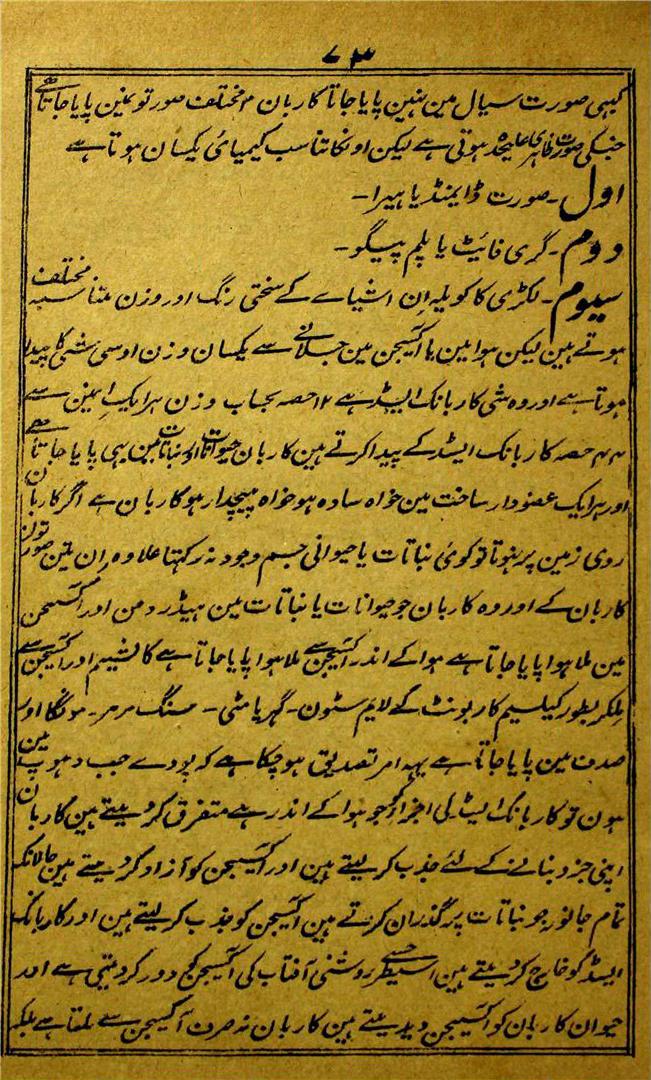 ۷۳
کبہی صورت سیال مین نہین پایا جاتا کاربان ۳ مختلف صورتونمین پایا جاتا ہے
جنکی صورت ظاہری علیحدہ ہوتی ہے لیکن اونکا تناسب کیمیائی یکسان ہوتا ہے
اول ۔ صورت ڈایمنڈ یا ہیرا ۔
دوم ۔ گری فائیٹ یا پلم پیگو ۔
سیوم ۔ لکڑی کا کویلہ ان اشیاے کے سختی رنگ اور وزن متناسبہ مختلف
ہوتے ہین لیکن ہوا مین یا آکسیجن مین جلانے سے یکسان وزن اوسی شی کا پیدا
ہوتا ہے اور وہ شی کاربانک ایسڈ ہے ۱۲ حصہ بحساب وزن ہر ایک انمین سے
۴۴ حصہ کاربانک ایسڈ کے پیدا کرتے ہین کاربان حیوانات اور نباتات مین بہی پایا جاتا ہے
اور ہر ایک عضودار ساخت مین خواہ سادہ ہو خواہ پیچدار ہو کاربان ہے اگر کاربان
روی زمین پر نہوتا تو کوئی نباتات یا حیوانی جسم وجود نہ رکہتا علاوہ ان تین صورتون
کاربان کے اور وہ کاربان جو حیوانات یا نباتات مین ہیڈروجن اور آکسیجن
مین ملا ہوا پایا جاتا ہے ہوا کے اندر آکسیجن سے ملا ہوا پایا جاتا ہے کالشیم اور آکسیجن سے
ملکر بطور کیلسیم کاربونٹ کے لایم سٹون ۔ گہریا مٹی ۔ سنگ مرمر ۔ مونگا اور
صدف مین پایا جاتا ہے یہہ امر تصدیق ہو چکا ہے کہ پودے جب دہوپ مین
ہون تو کاربانک ایسڈ کی اجزا کو جو ہوا کے اندر ہے متفرق کر دیتے ہین کاربان
اپنی جزو بنانے کے لئے جذب کر لیتے ہین اور آکسیجن کو آزاد کر دیتے ہین حالانکہ
تمام جانور جو نباتات پر گذران کرتے ہین آکسیجن کو جذب کر لیتے ہین اور کاربانک
ایسڈ کو خارج کر دیتے ہین اسیطرحسے روشنی آفتاب کی آکسیجن کو دور کر دیتی ہے اور
حیوان کاربان کو آکسیجن دیدیتے ہین کاربان نہ صرف آکسیجن سے ملتا ہے بلکہ